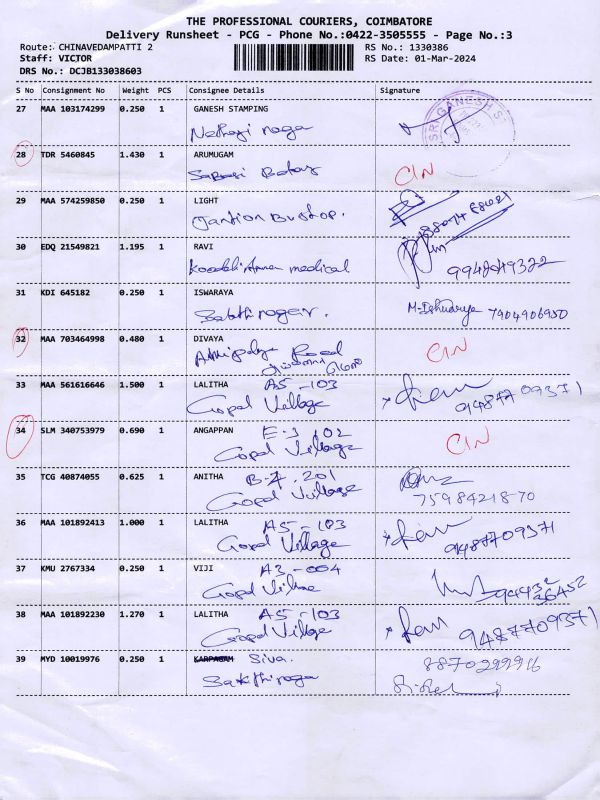 THE PROFESSIONAL COURIERS, COIMBATORE
Delivery Runsheet - PCG - Phone No.:0422-3505555 - Page No.:3
Route: CHINAVEDAMPATTI 2 RS No.: 1330386
Staff: VICTOR RS Date: 01-Mar-2024
DRS No.: DCJB133038603
S No Consignment No Weight PCS Consignee Details Signature
27 MAA 103174299 0.250 1 GANESH STAMPING
SRI GANESH
28 TDR 5460845 1.430 1 ARUMUGAM
CIN
29 MAA 574259850 0.250 1 LIGHT
30 EDQ 21549821 1.195 1 RAVI
medical
31 KDI 645182 0.250 1 ISWARAYA
7904906950
32 MAA 703464998 0.480 1 DIVAYA
Road CIN
33 MAA 561616646 1.500 1 LALITHA A5-103
Gopal Village 9487709371
34 SLM 340753979 0.690 1 ANGAPPAN
Gopal Village CIN
35 TCG 40874055 0.625 1 ANITHA
Gopal Village 7598421870
36 MAA 101892413 1.000 1 LALITHA A5-103
Gopal Village 9487709371
37 KMU 2767334 0.250 1 VIJI A3-004
Gopal Village
38 MAA 101892230 1.270 1 LALITHA A5-103
Gopal Village 9487709371
39 MYD 10019976 0.250 1 KARPAGAM Siva.